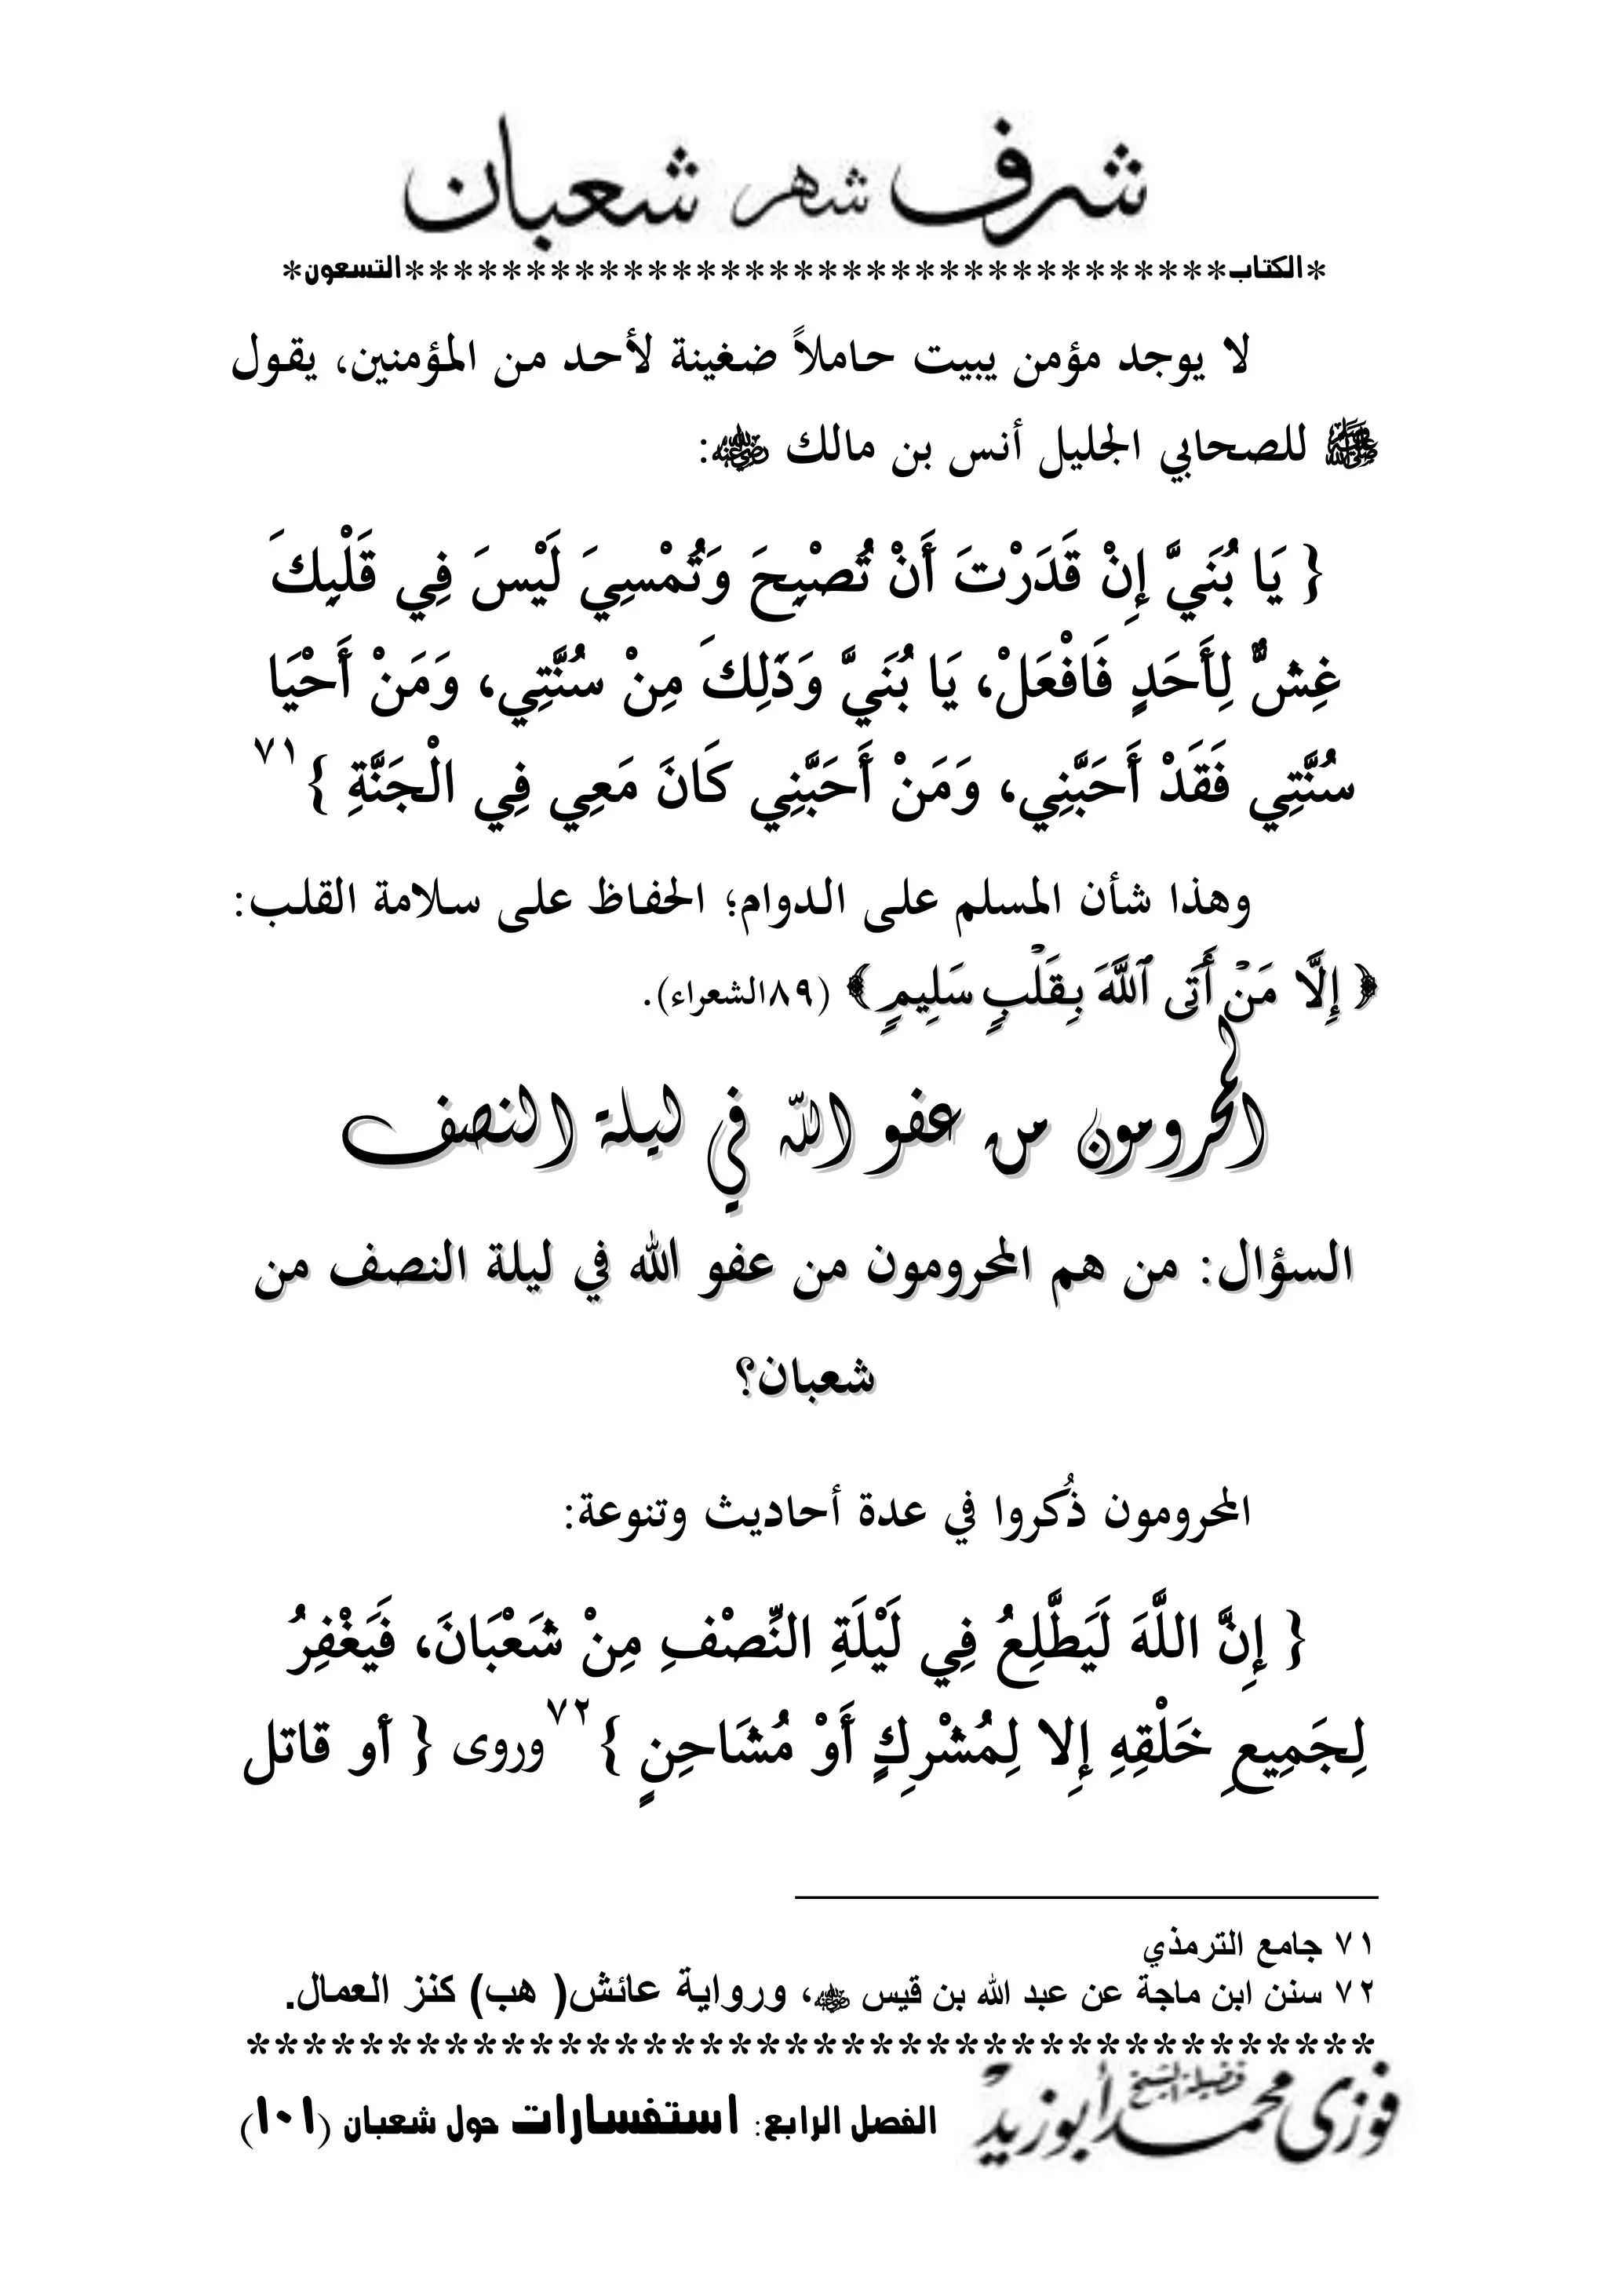 شرف شهر شعبان
*الكتاب**********************************التسعون*
لا يوجد مؤمن يبيت حاملاً ضغينة لأحد من المؤمنين، يقول
ﷺ للصحابي الجليل أنس بن مالك ؓ:
{ يَا بُنَيَّ إِنْ قَدَرْتَ أَنْ تُصْبِحَ وَتُمْسِيَ لَيْسَ فِي قَلْبِكَ
غِشٌّ لِأَحَدٍ فَافْعَلْ، يَا بُنَيَّ وَذَلِكَ مِنْ سُنَّتِي، وَمَنْ أَحْيَا
سُنَّتِي فَقَدْ أَحَبَّنِي، وَمَنْ أَحَبَّنِي كَانَ مَعِي فِي الْجَنَّةِ }٧١
وهذا شأن المسلم على الدوام؛ الحفاظ على سلامة القلب:
﴿ إِلَّا مَنْ أَتَى ٱللَّهَ بِقَلْبٍ سَلِيمٍ ﴾ (٨٩الشعراء).
المحرومون من عفو الله في ليلة النصف
السؤال: من هم المحرومون من عفو الله في ليلة النصف من
شعبان؟
المحرومون ذُكروا في عدة أحاديث وتنوعة:
{ إِنَّ اللَّهَ لَيَطَّلِعُ فِي لَيْلَةِ النِّصْفِ مِنْ شَعْبَانَ، فَيَغْفِرُ
لِجَمِيعِ خَلْقِهِ إِلا لِمُشْرِكٍ أَوْ مُشَاحِنٍ }٧٢وروى { أو قاتل
٧١ جامع الترمذي
٧٢ سنن ابن ماجة عن عبد الله بن قيس ؓ، ورواية عائش( هب) كنز العمال.
****************************************
فضيلة الشيخ فوزى محمد أبوزيد الفصل الرابع: استفسارات حول شعبان (١٠١)